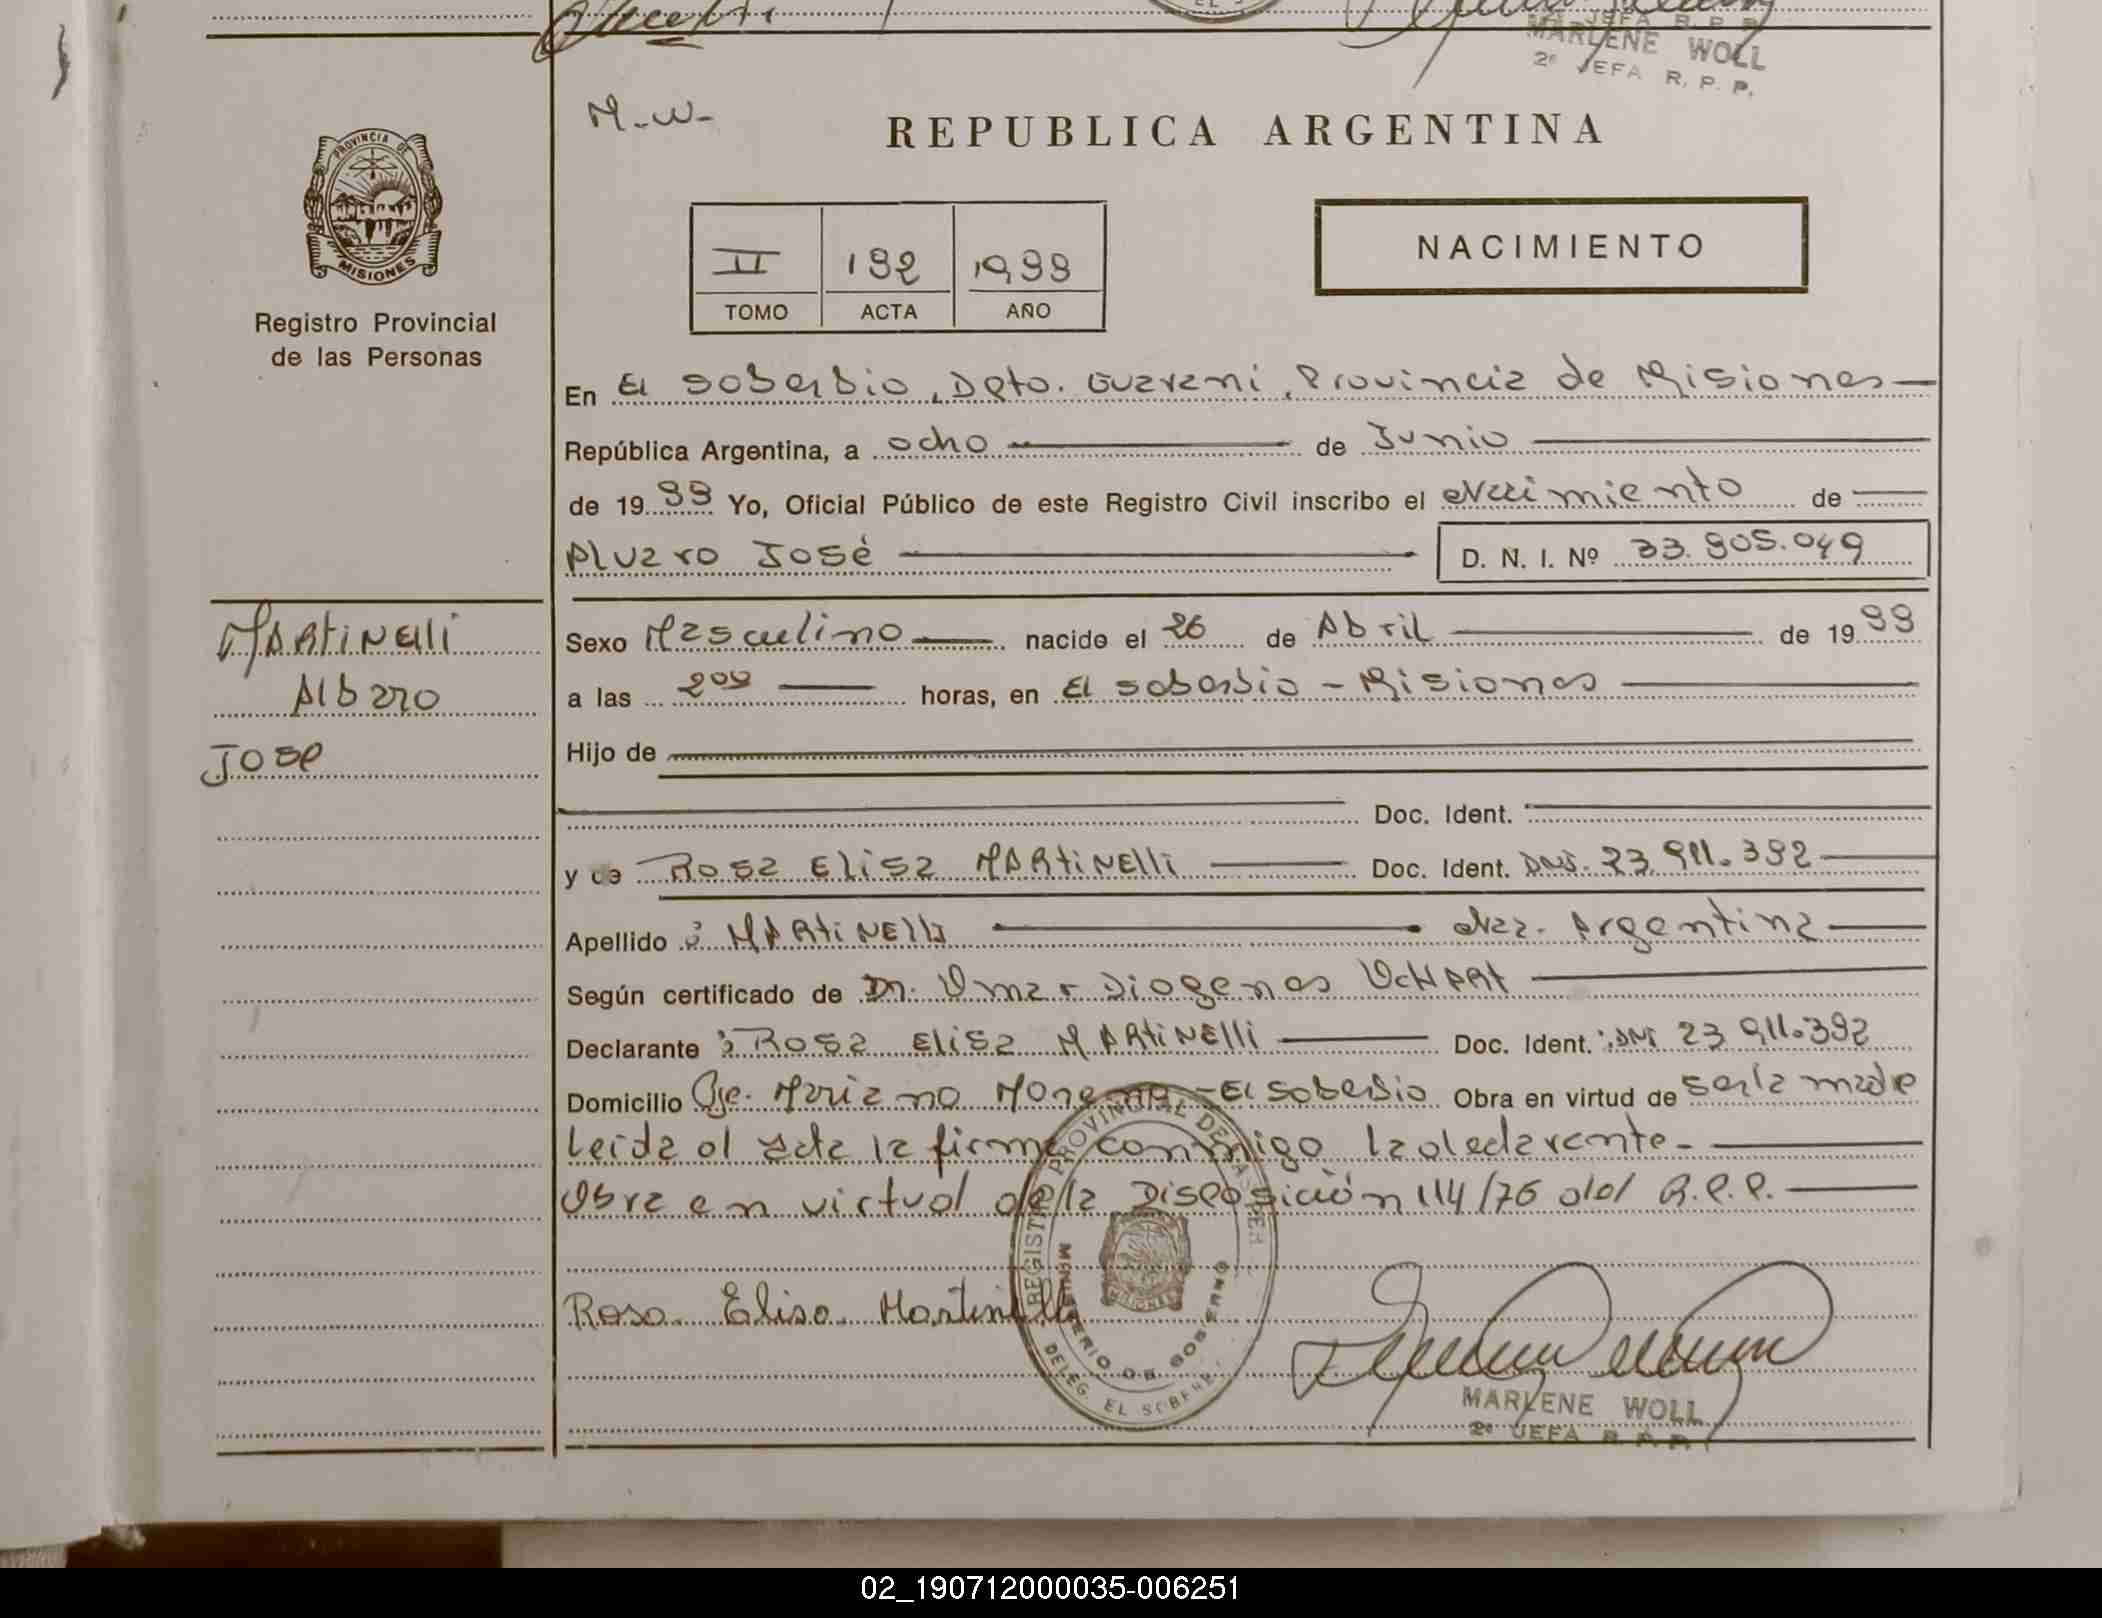 MARLENE WOLL
2º JEFA R. P. P.
M-W-
REPUBLICA ARGENTINA
PROVINCIA DE
MISIONES
Registro Provincial
de las Personas
II 192 1999
TOMO ACTA AÑO
NACIMIENTO
En El Soberbio, Dpto. Guarani, Provincia de Misiones
República Argentina, a ocho de Junio
de 19 99 Yo, Oficial Público de este Registro Civil inscribo el Nacimiento de
Alvaro José D. N. I. Nº 33.905.049
MARTINElli
Albaro
José
Sexo Masculino nacido el 26 de Abril de 19 99
a las horas, en El Soberbio - Misiones
Hijo de
Doc. Ident.
y de Rosa Elisa MARTINElli Doc. Ident. DNI. 23.911.392
Apellido : MARTINElli Nac. Argentina
Según certificado de Dr. Omar Diogenes
Declarante : Rosa Elisa MARTINElli Doc. Ident. : DNI 23 911.392
Domicilio Pje. Mariano Moreno - El Soberbio Obra en virtud de ser la madre
Leida el acta la firma conmigo la declarante -
Obra en virtud de la Disposición 114/76 del R.P.P.
Rosa Elisa Martinelli
REGISTRO PROVINCIAL DE LAS PER
MINISTERIO DE GOBIERNO
MISIONES
DELEG. EL SOBERB
MARLENE WOLL
2º JEFA R. P. P.
02_190712000035-006251